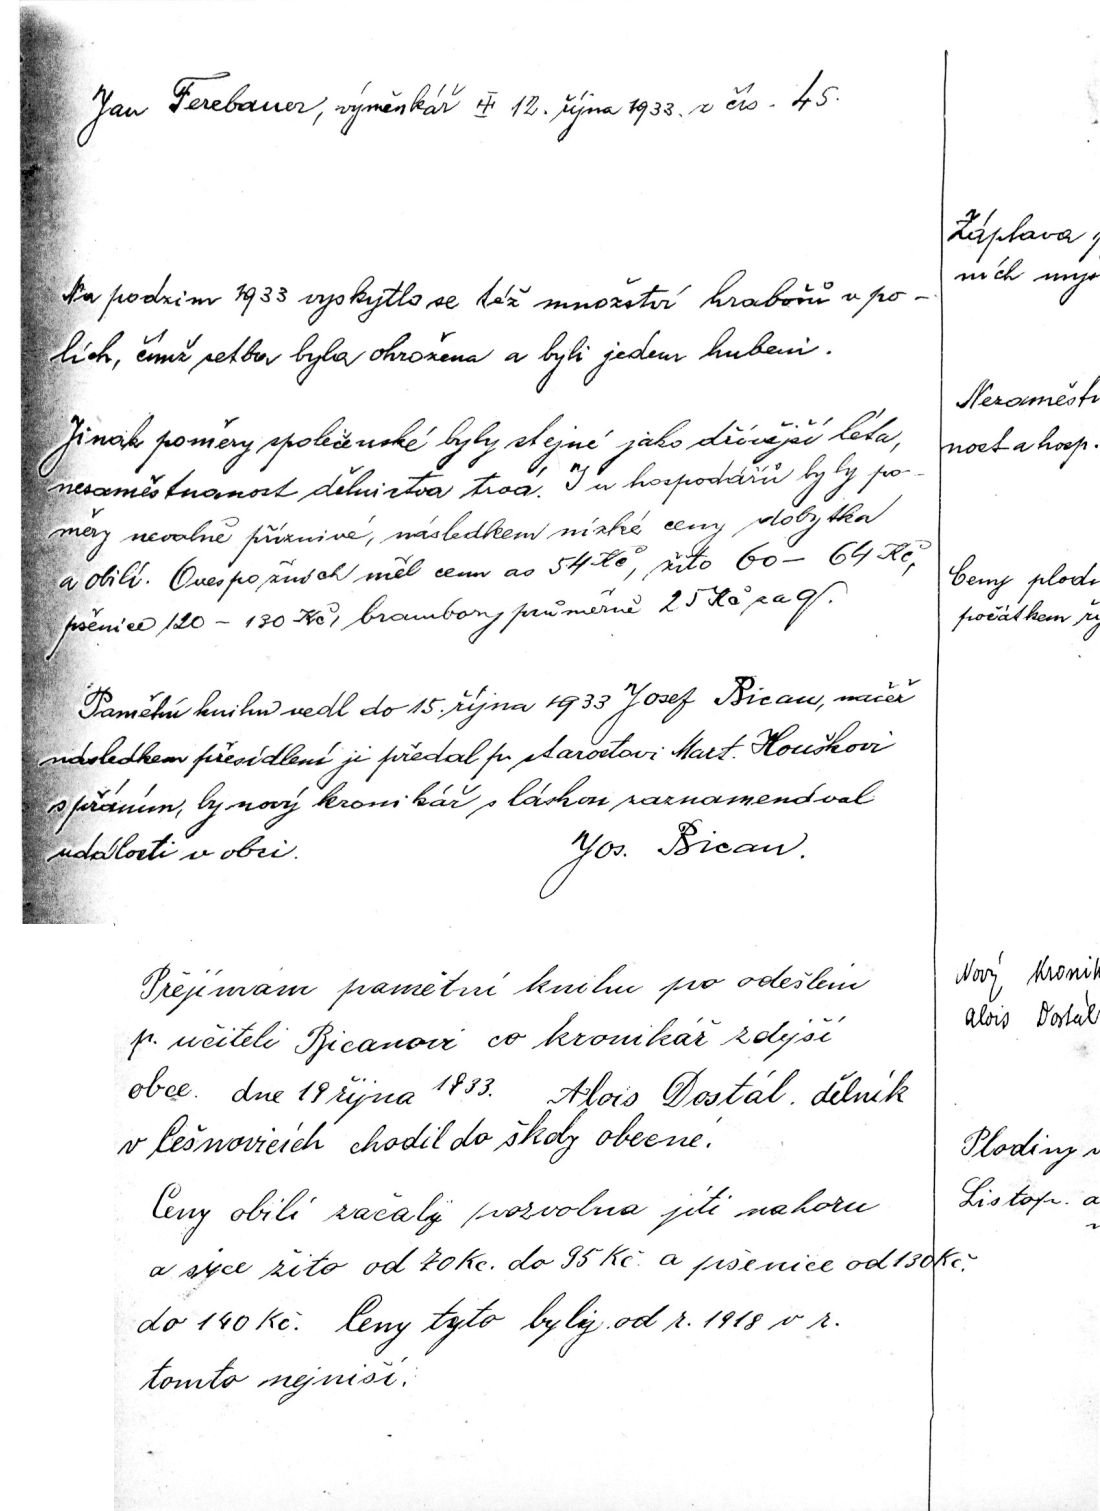 Jan Ferebauer, výměnkář ⚰ 12. října 1933. v čís. 45.
Záplava
ních
Na podzim 1933 vyskytlo se též množství hrabošů v po-
lích, čímž setba byla ohrožena a byli jedem hubeni.
Nezaměst
nost a hosp.
Jinak poměry společenské byly stejné jako dřívější léta,
nezaměstnanost dělnictva trvá. I u hospodářů byly po-
měry nevalně příznivé, následkem nízké ceny dobytka
a obilí. Oves po žních měl cenu as 54 Kč, žito 60 - 64 Kč,
pšenice 120 - 130 Kč, brambory průměrně 25 Kč za q.
Ceny plodi
počátkem
Pamětní knihu vedl do 15. října 1933 Josef Bican, načež
následkem přesídlení ji předal p. starostovi Mart. Houškovi
s přáním, by nový kronikář s láskou zaznamenával
události v obci. Jos. Bican.
Nový kronik
Alois Dostál
Přejímám pamětní knihu po odešlém
p. učiteli Bicanovi co kronikář zdejší
obce. dne 19 října 1933. Alois Dostál. dělník
v Češnovicích chodil do školy obecné.
Plodiny v
Listop. a
Ceny obilí začaly pozvolna jíti nahoru
a sice žito od 70 Kč. do 95 Kč. a pšenice od 130 Kč.
do 140 Kč. Ceny tyto byly od r. 1918 v r.
tomto nejniší.